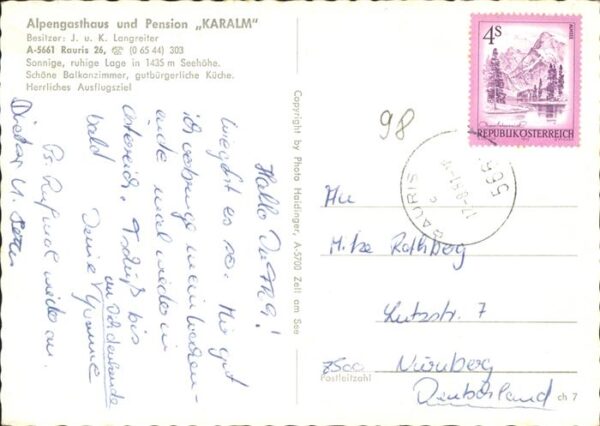 Alpengasthaus und Pension „KARALM“
Besitzer: J. u. K. Langreiter
A-5661 Rauris 26, ☏ (0 65 44) 303
Sonnige, ruhige Lage in 1435 m Seehöhe.
Schöne Balkonzimmer, gutbürgerliche Küche.
Herrliches Ausflugsziel
Hallo
wie geht es so. Mir gut
ich verbringe mein Wochen-
ende mal wieder in
Österreich. Tschüß bis
bald Deine Yvonne
Ps Ruf mal wieder an.
Dieter u.
Copyright by Photo Haidinger, A-5700 Zell am See
98
4S
REPUBLIK ÖSTERREICH
RAURIS
An
Rathberg
Lutzstr. 7
7500 Nürnberg
Postleitzahl
Deutschland
ch 7